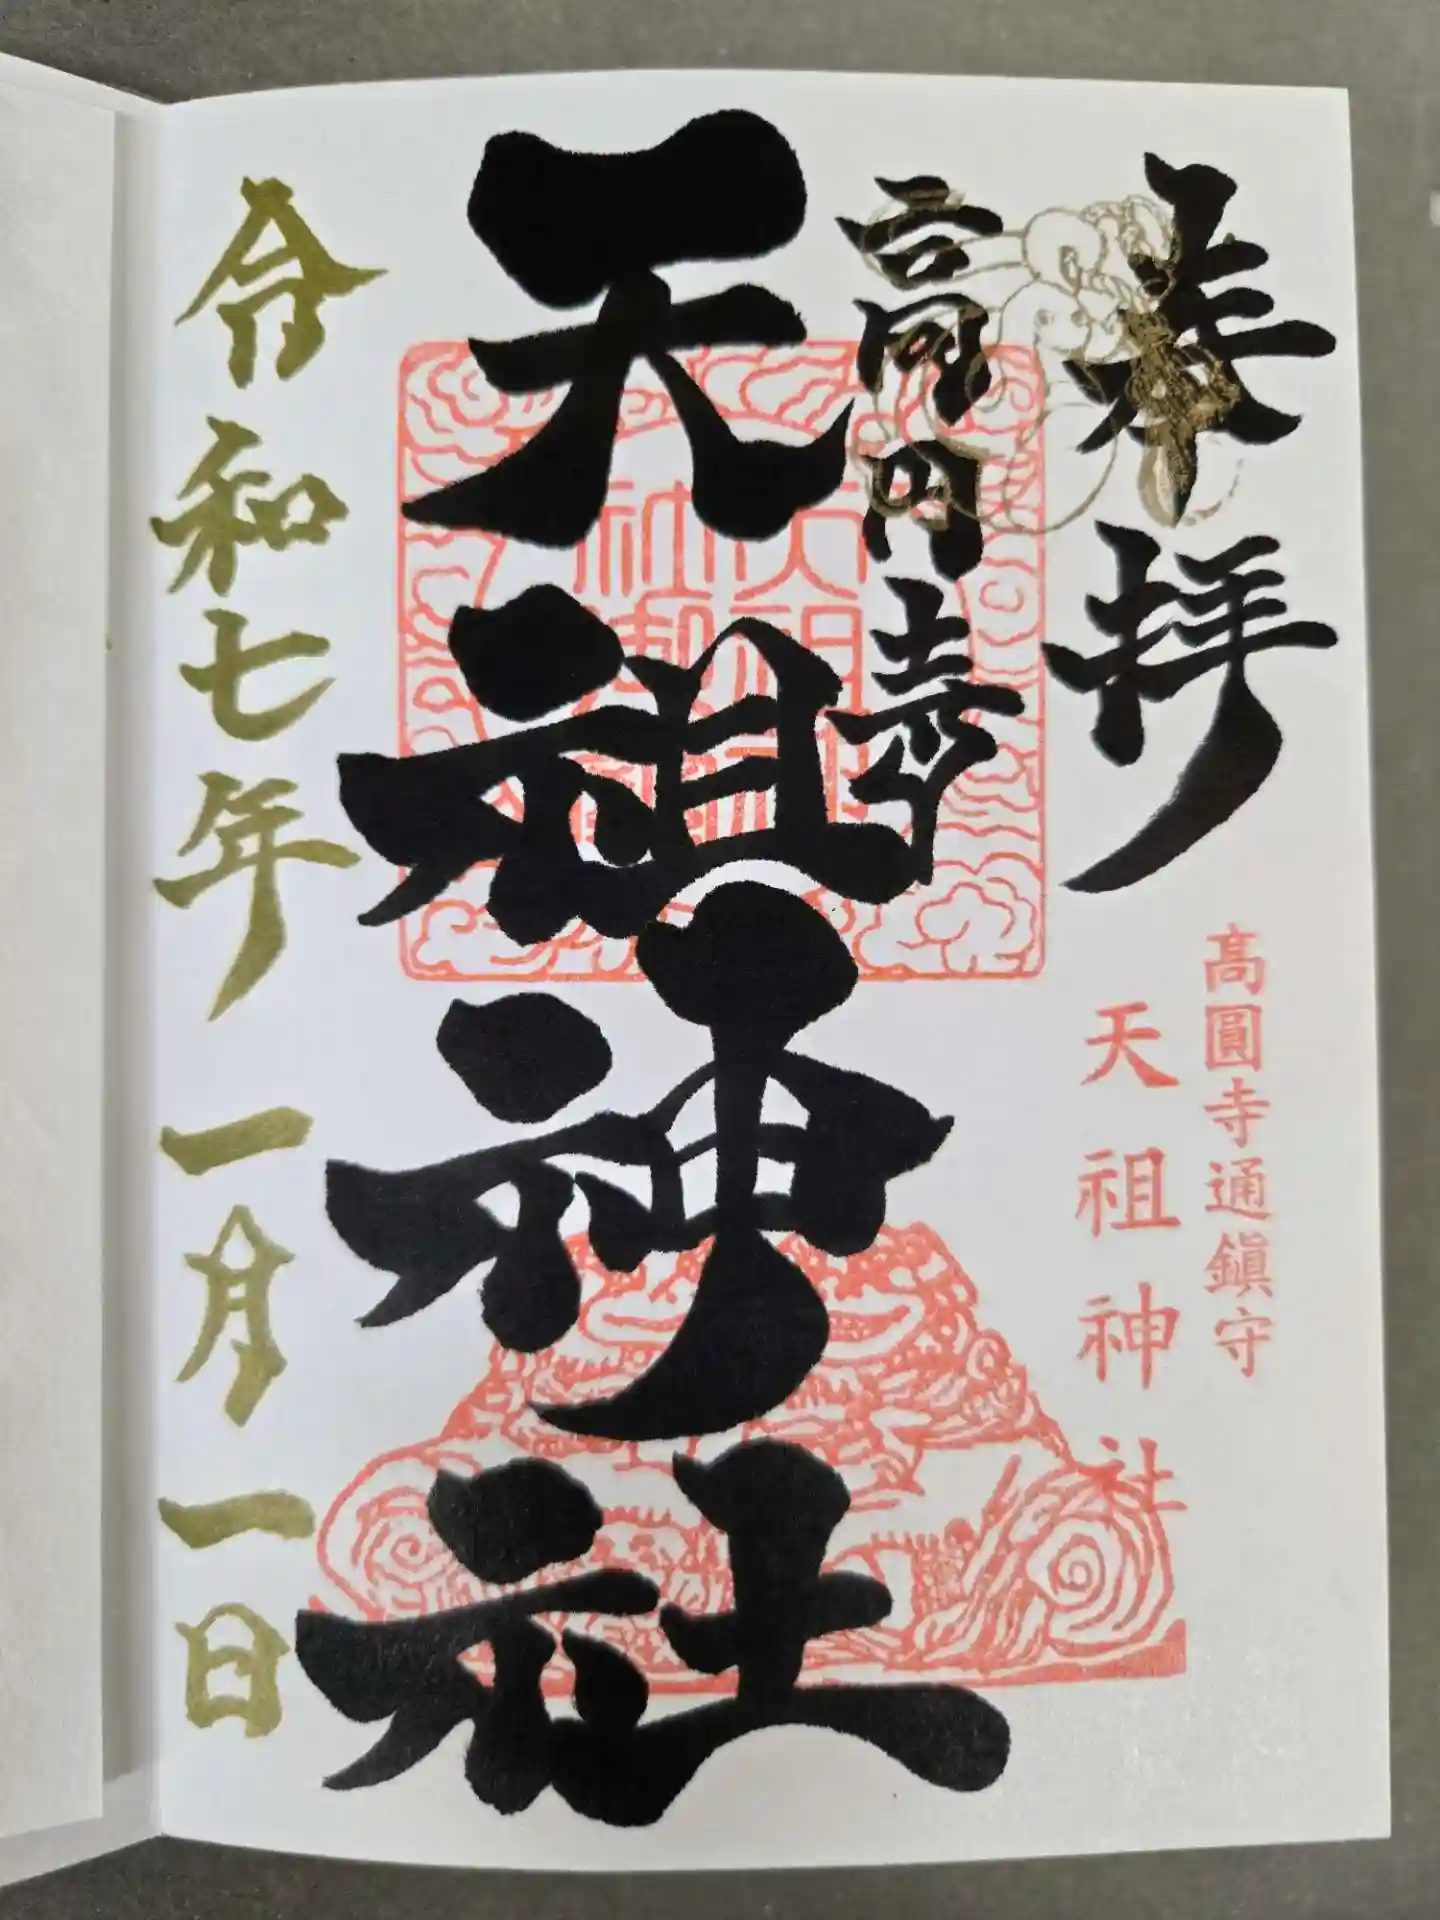 奉拝
髙圓寺通鎭守
天祖神社
高円寺
天祖神社
令和七年一月一日